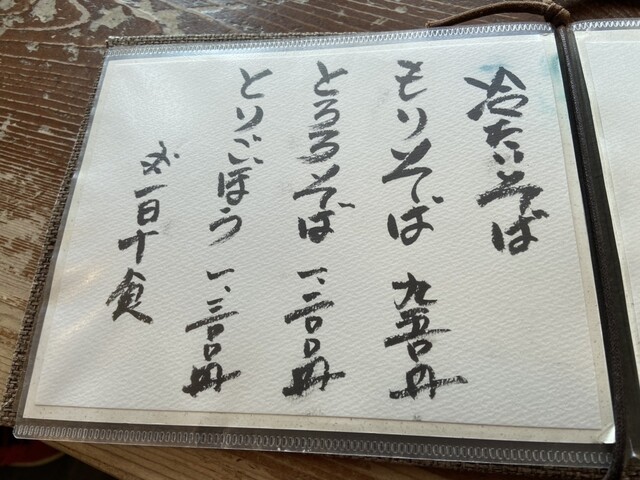 冷たいそば
もりそば 九五〇円
とろろそば 一、三〇〇円
とりごぼう 一、三〇〇円
一日十食